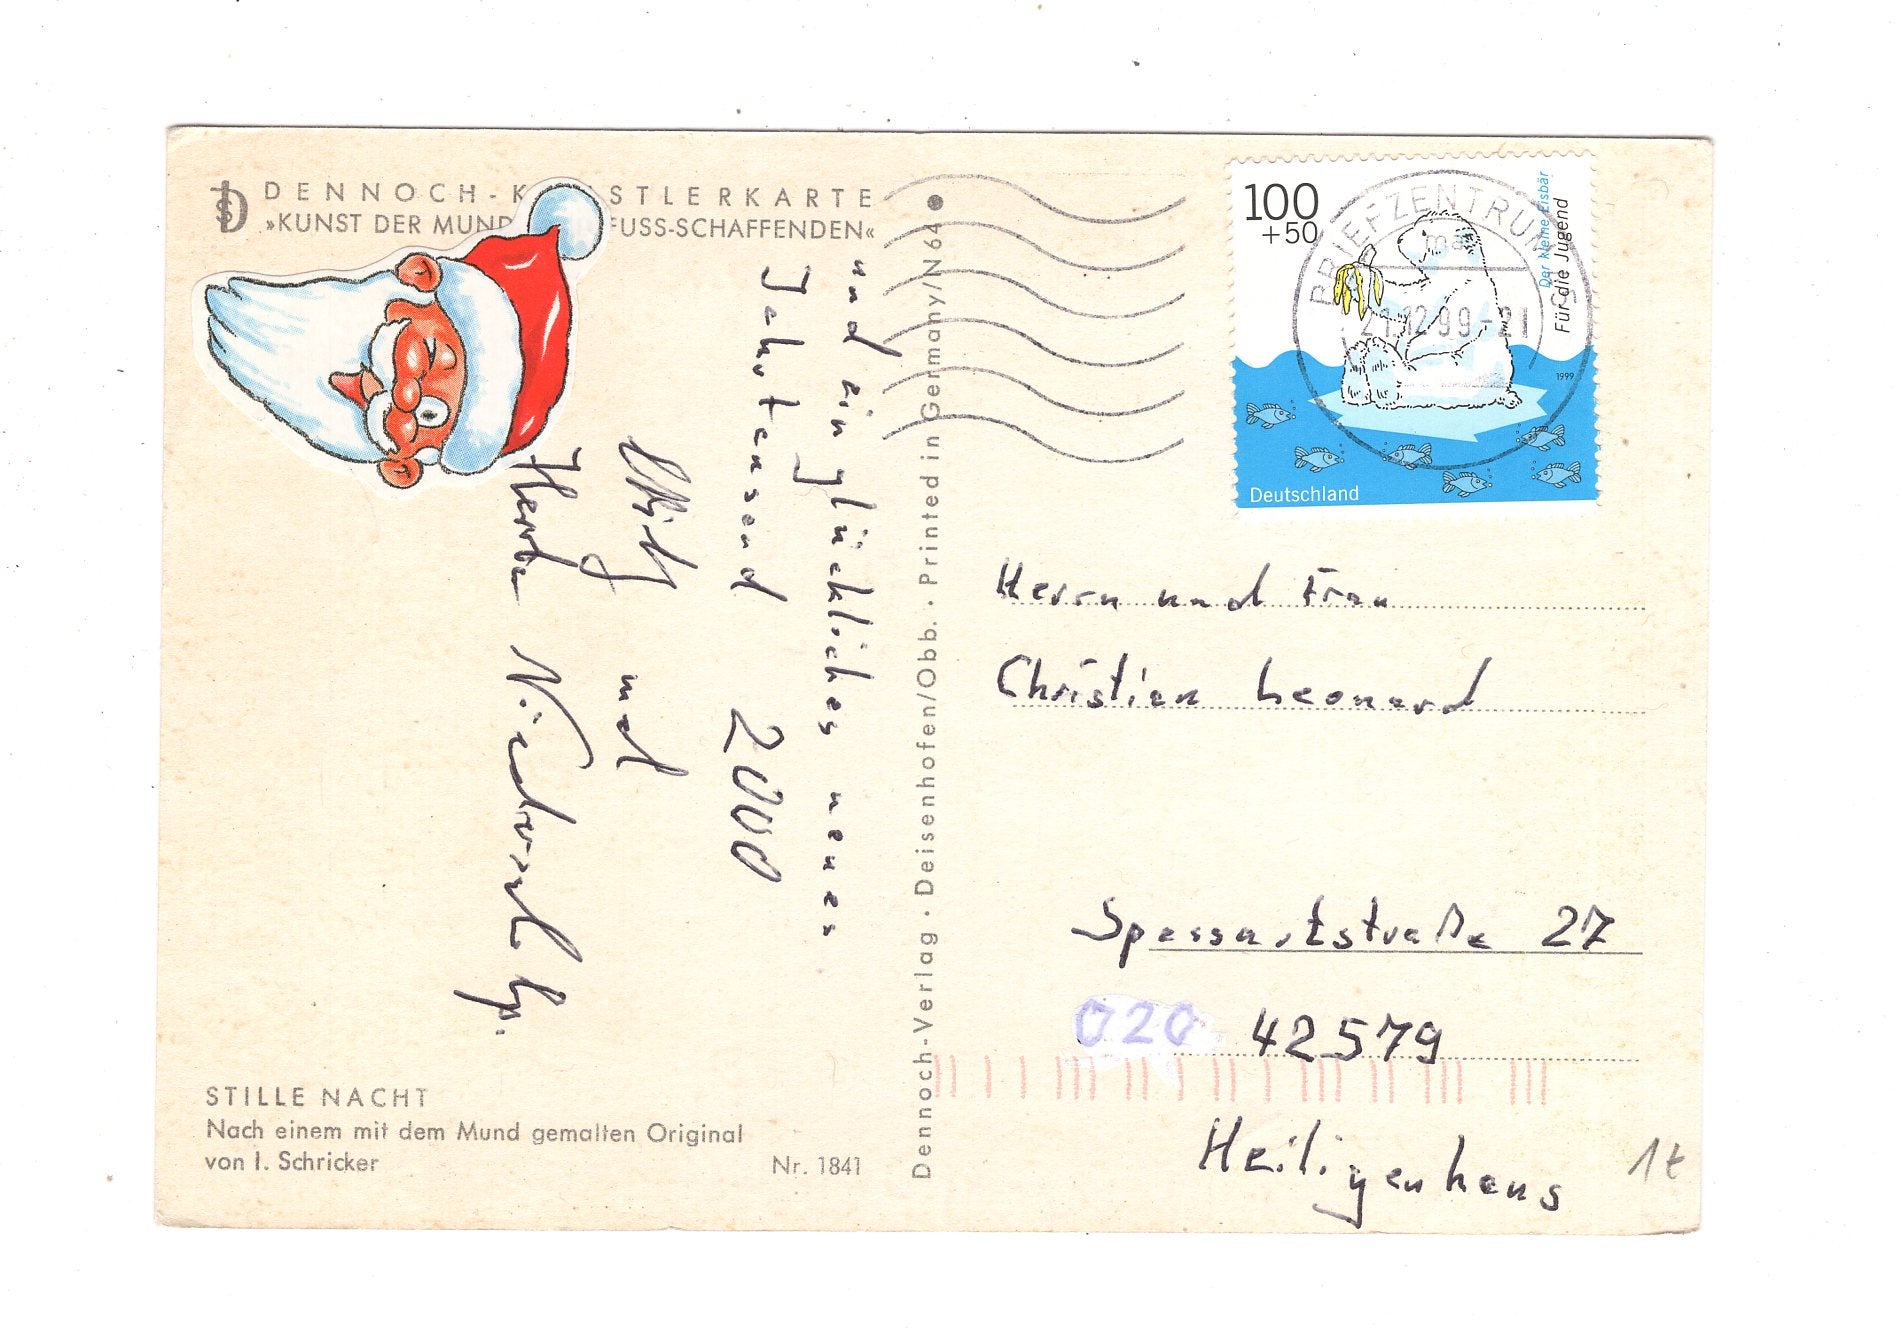 DENNOCH-K STLERKARTE
»KUNST DER MUND FUSS-SCHAFFENDEN«
und ein glückliches neues
Jahrtausend 2000
und
Herta
STILLE NACHT
Nach einem mit dem Mund gemalten Original
von I. Schricker
Nr. 1841
Dennoch-Verlag · Deisenhofen/Obb. · Printed in Germany/N64
100
+50
Der kleine Eisbär
Für die Jugend
1999
Deutschland
BRIEFZENTRUM
21.12.99-21
Herrn und Frau
Christian Leonard
Spessartstraße 27
020 42579
Heiligenhaus